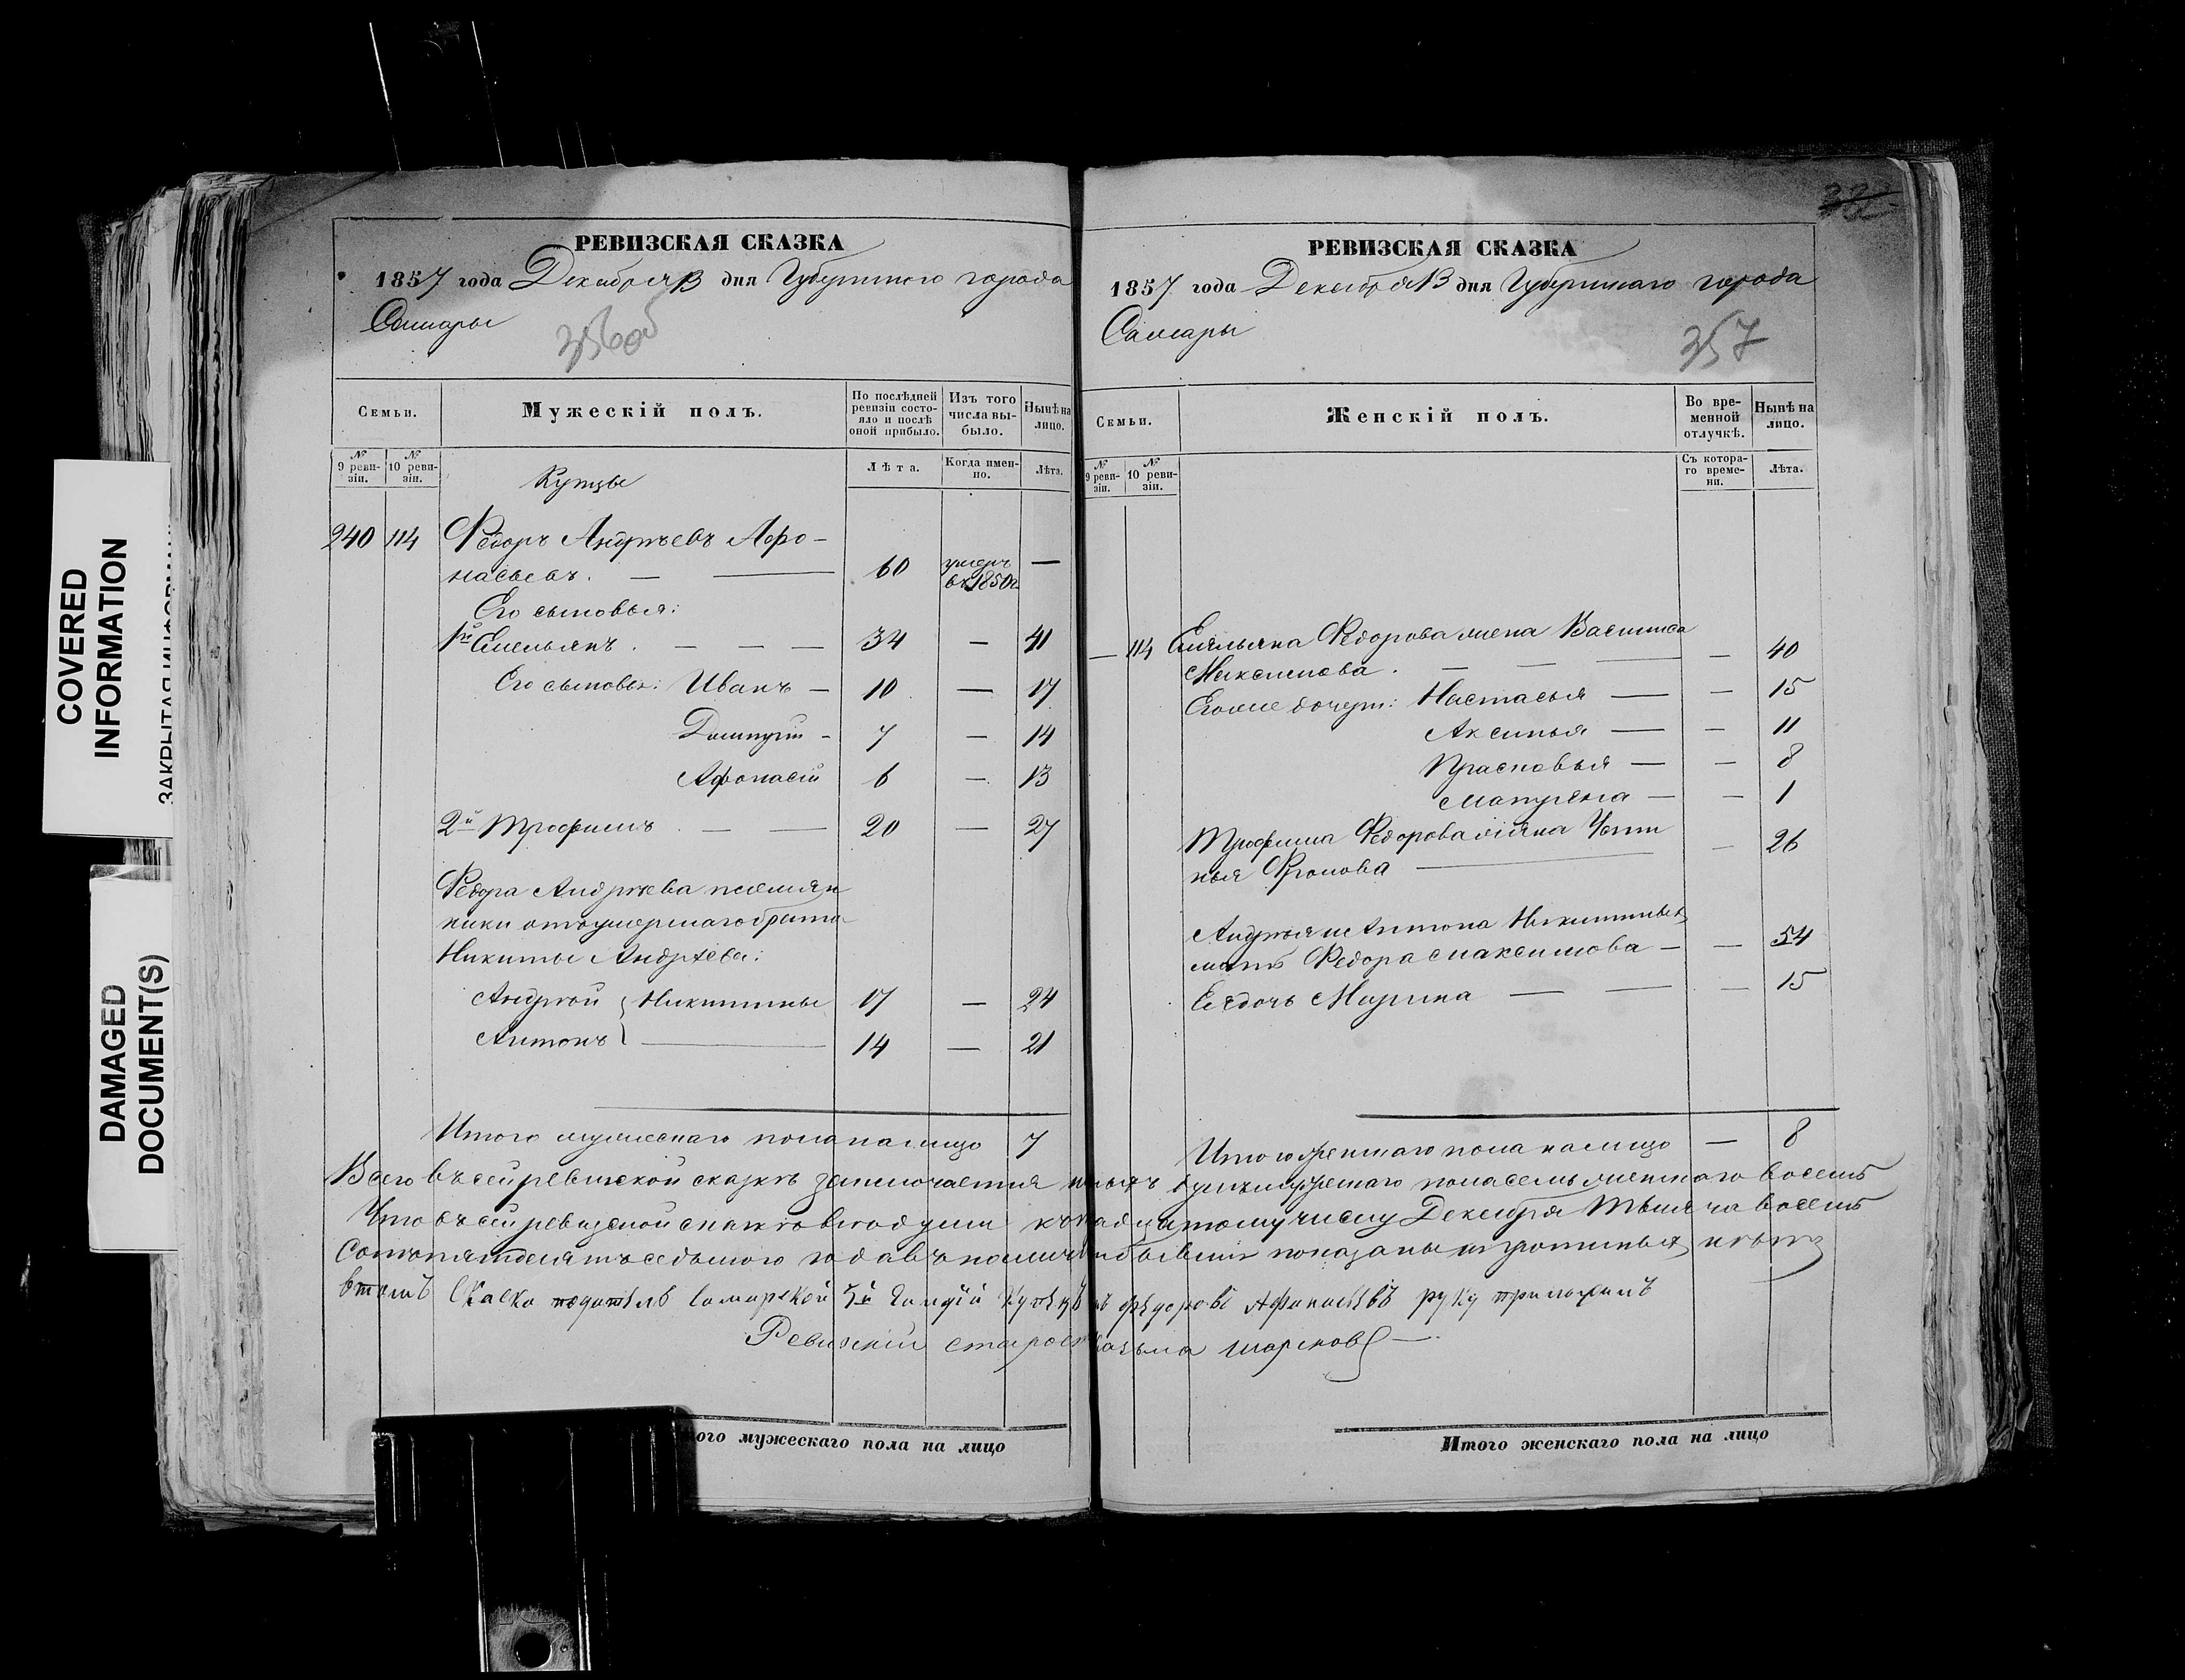 COVERED
INFORMATION
DAMAGED
DOCUMENT(S)
РЕВИЗСКАЯ СКАЗКА
1857 года Декабря 13 дня Губернского города
Самары
356об
Семьи.
Мужескій полъ.
По послѣдней ревизіи состояло и послѣ оной прибыло.
Изъ того числа выбыло.
Нынѣ на лицо.
№ 9 ревизіи.
№ 10 ревизіи.
Лѣта.
Когда именно.
Лѣта.
Купцы
240 114 Ѳедоръ Андрѣевъ Афо-
насьевъ. — — 60 умеръ въ 1850г. —
Его сыновья:
1й Емельянъ. — — — 34 — 41
Его сыновья: Иванъ — 10 — 17
Дмитрій — 7 — 14
Афонасій 6 — 13
2й Трофимъ — — 20 — 27
Ѳедора Андрѣева племян
ники отъ умершаго брата
Никиты Андрѣева:
Андрей } Никитины 17 — 24
Антонъ } — 14 — 21
Итого мужескаго пола на лицо 7
РЕВИЗСКАЯ СКАЗКА
1857 года Декабря 13 дня Губернскаго города
Самары
357
Семьи.
Женскій полъ.
Во временной отлучкѣ.
Нынѣ на лицо.
№ 9 ревизіи.
№ 10 ревизіи.
Съ котораго времени.
Лѣта.
— 114 Емельяна Ѳедорова жена Василиса
Максимова. — — — — 40
Его же дочери: Настасья — — 15
Аксинья — — 11
Прасковья — — 8
Матрена — — 1
Трофима Ѳедорова жена
Фролова — — 26
Андрея и Антона Никитиныхъ
мать Ѳедора Максимова — — 54
Ея дочь Марина — — — 15
Итого женскаго пола на лицо — 8
Всего въ сей ревизской сказкѣ заключается мужескаго семь женскаго восемь
Что въ сей ревизской сказкѣ всѣ души къ числу Декабря тысяча восемь
сотъ пятьдесятъ седьмого года въ показаны и пропиныхъ нѣтъ
втомъ скаски подателъ самарской 3й Гилдіи Купецъ Афанасьевъ руку приложилъ
Ревизскій староста Козьма
ого мужескаго пола на лицо
Итого женскаго пола на лицо